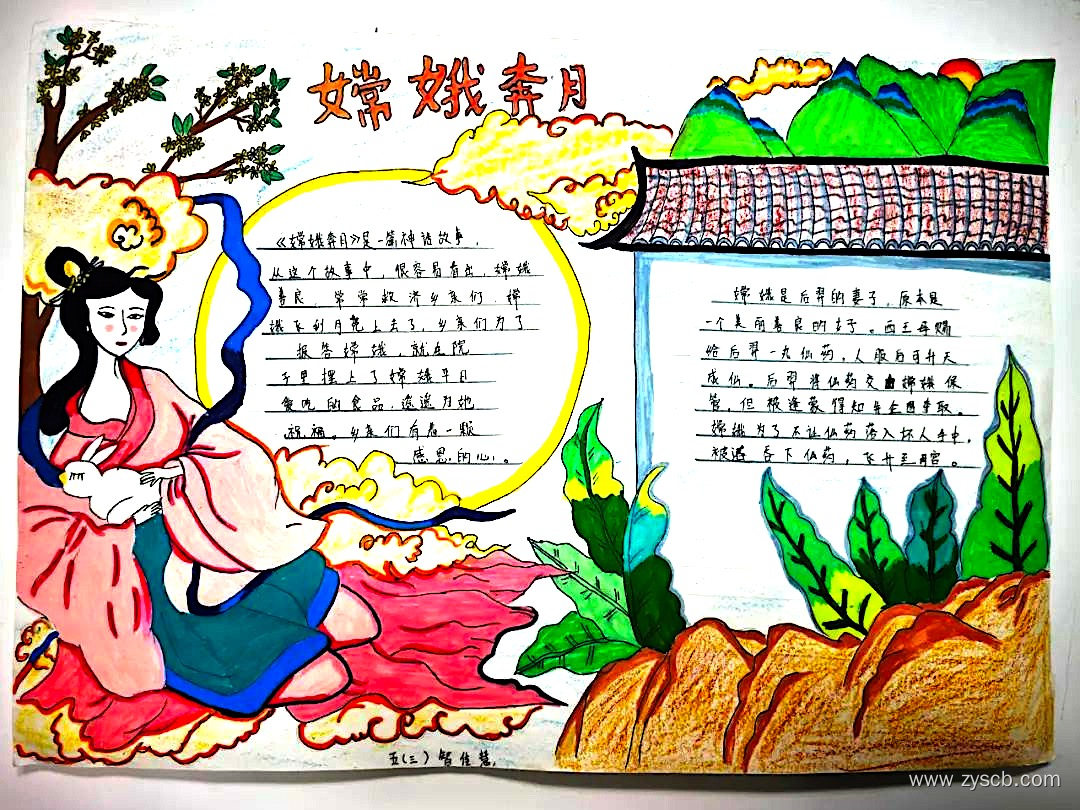 嫦娥奔月
《嫦娥奔月》是一篇神话故事，
从这个故事中，很容易看出，嫦娥
善良，常常救济乡亲们，嫦
娥飞到月亮上去了，乡亲们为了
报答嫦娥，就在院
子里摆上了嫦娥平日
爱吃的食品，遥遥为她
祝福。乡亲们有着一颗
感恩的心。
嫦娥是后羿的妻子，原本是
一个美丽善良的女子。西王母赐
给后羿一丸仙药，人服后可升天
成仙。后羿将仙药交由嫦娥保
管，但被逢蒙得知并企图拿取。
嫦娥为了不让仙药落入坏人手中，
被逼吞下仙药，飞升至月宫。
五(三)智佳慧.
www.zyscb.com